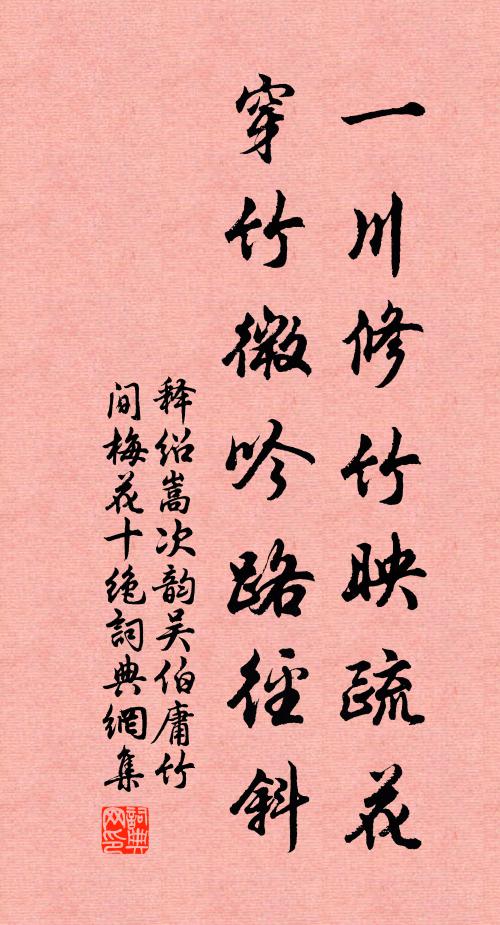 一川修竹映疏花
穿竹微吟路徑斜
释紹嵩次韵吴伯庸竹
间梅花十绝詞典網集
詞典
网印